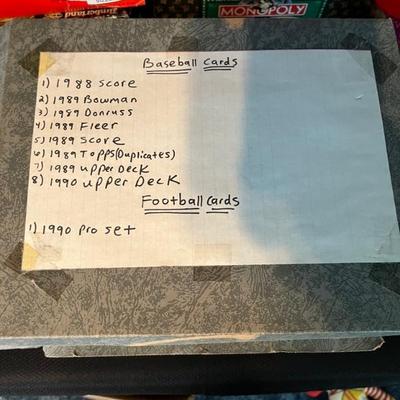 Timberland
MONOPOLY
Baseball Cards
1) 1988 Score
2) 1989 Bowman
3) 1989 Donruss
4) 1989 Fleer
5) 1989 Score
6) 1989 Topps(Duplicates)
7) 1989 Upper Deck
8) 1990 Upper Deck
Football Cards
1) 1990 Pro set